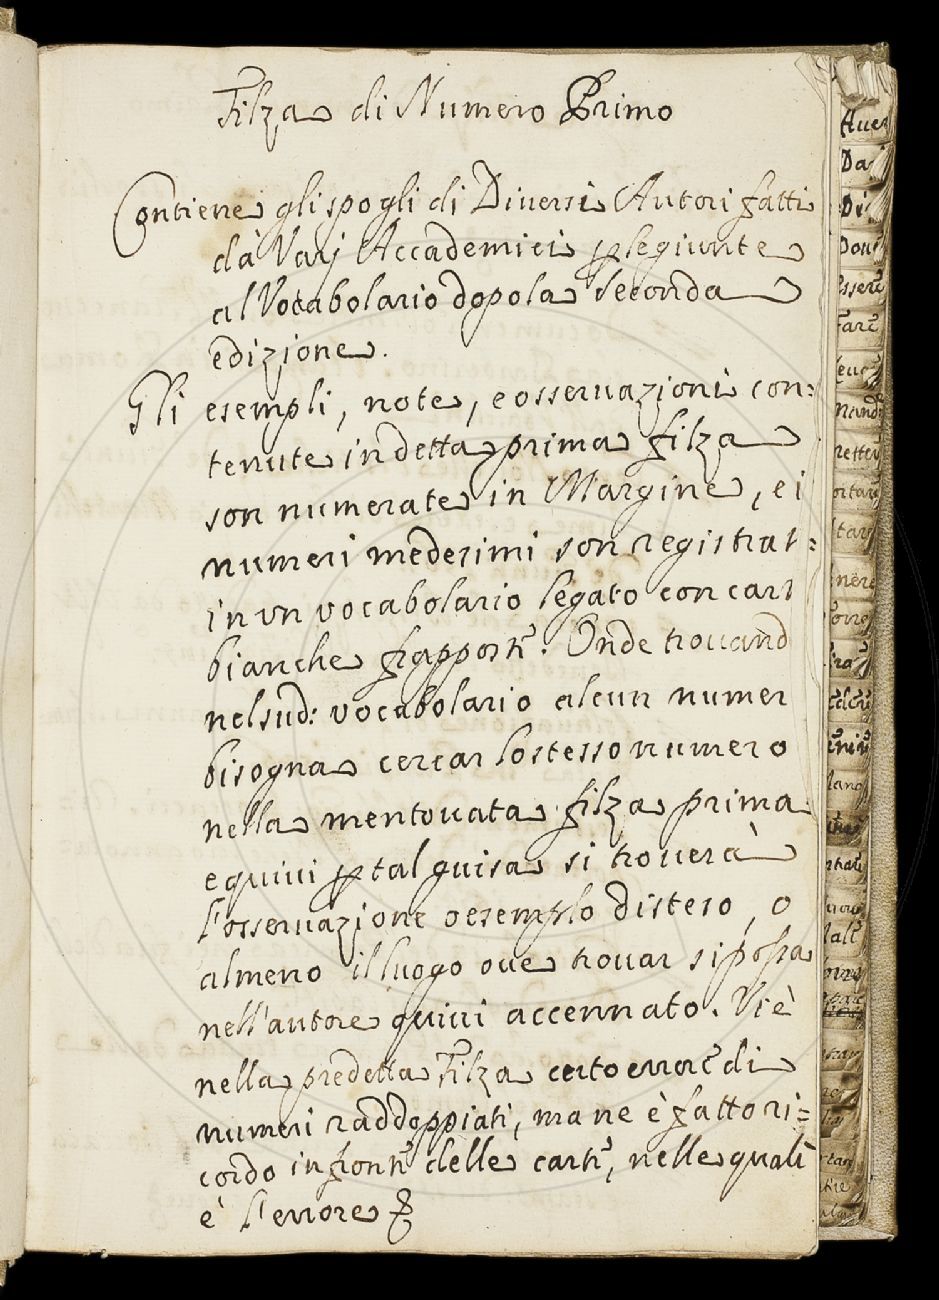 Filza di Numero Primo
Contiene gli spogli di Diuersi Autori fatti
dà Varj Accademici p le giunte
al Vocabolario dopo la Seconda
edizione.
Gli esempli, note, e osseruazioni con:
tenute in detta prima filza
son numerate in Margine, e i
numeri medesimi son registrat:
in vn vocabolario legato con cart
bianche frappost. Onde trouand
nel sud: vocabolario alcun numer
bisogna cercar lo stesso numero
nella mentouata filza prima
e quiui p tal guisa si trouerà
l'osseruazione o esemplo disteso, o
almeno il luogo oue trouar si possa
nell'autore quiui accennato. Vi è
nella predetta Filza certo errore di
numeri raddoppiati, ma ne è fatto ri=
cordo in front delle cart, nelle quali
è l'errore
Auer
Da
Di